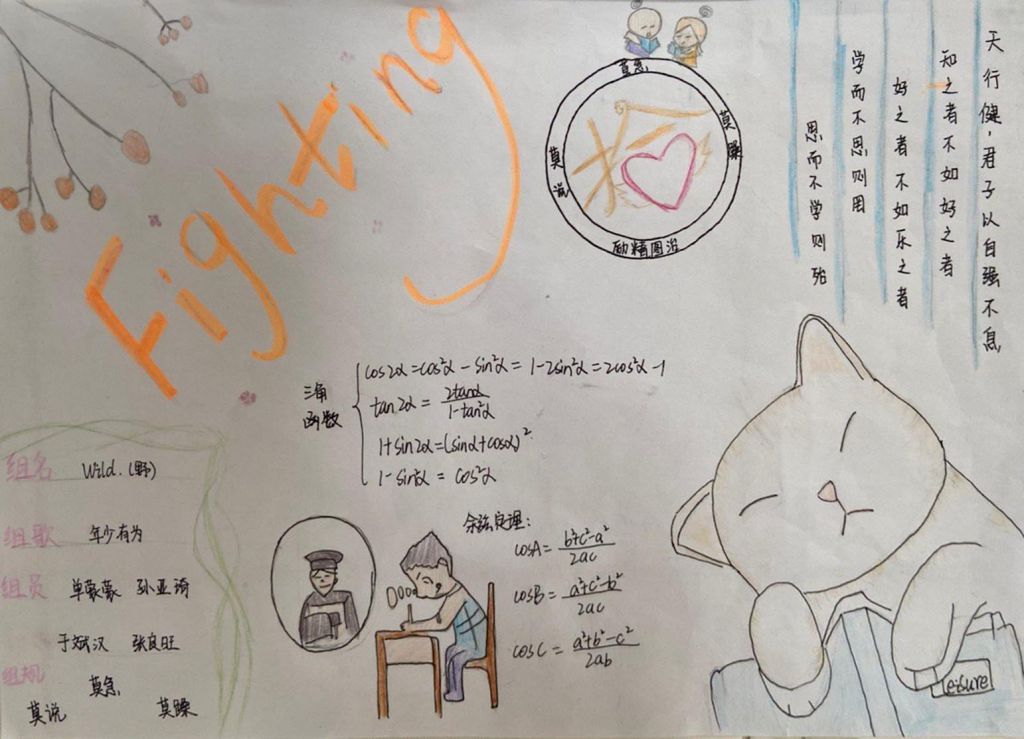 Fighting
莫急
莫躁
莫说
励精图治
天行健,君子以自强不息
知之者不如好之者
好之者不如乐之者
学而不思则罔
思而不学则殆
三角
函数
cos2α=cos²α-sin²α=1-2sin²α=2cos²α-1
tan2α=2tanα/1-tan²α
1+sin2α=(sinα+cosα)²
1-sin²α=cos²α
余弦定理:
cosA=b²+c²-a²/2ac
cosB=a²+c²-b²/2ac
cosC=a²+b²-c²/2ab
组名 Wild.(野)
组歌 年少有为
组员 单蒙蒙 孙亚琦
于斌汉 张良旺
组规
莫急
莫说 莫躁
leisure